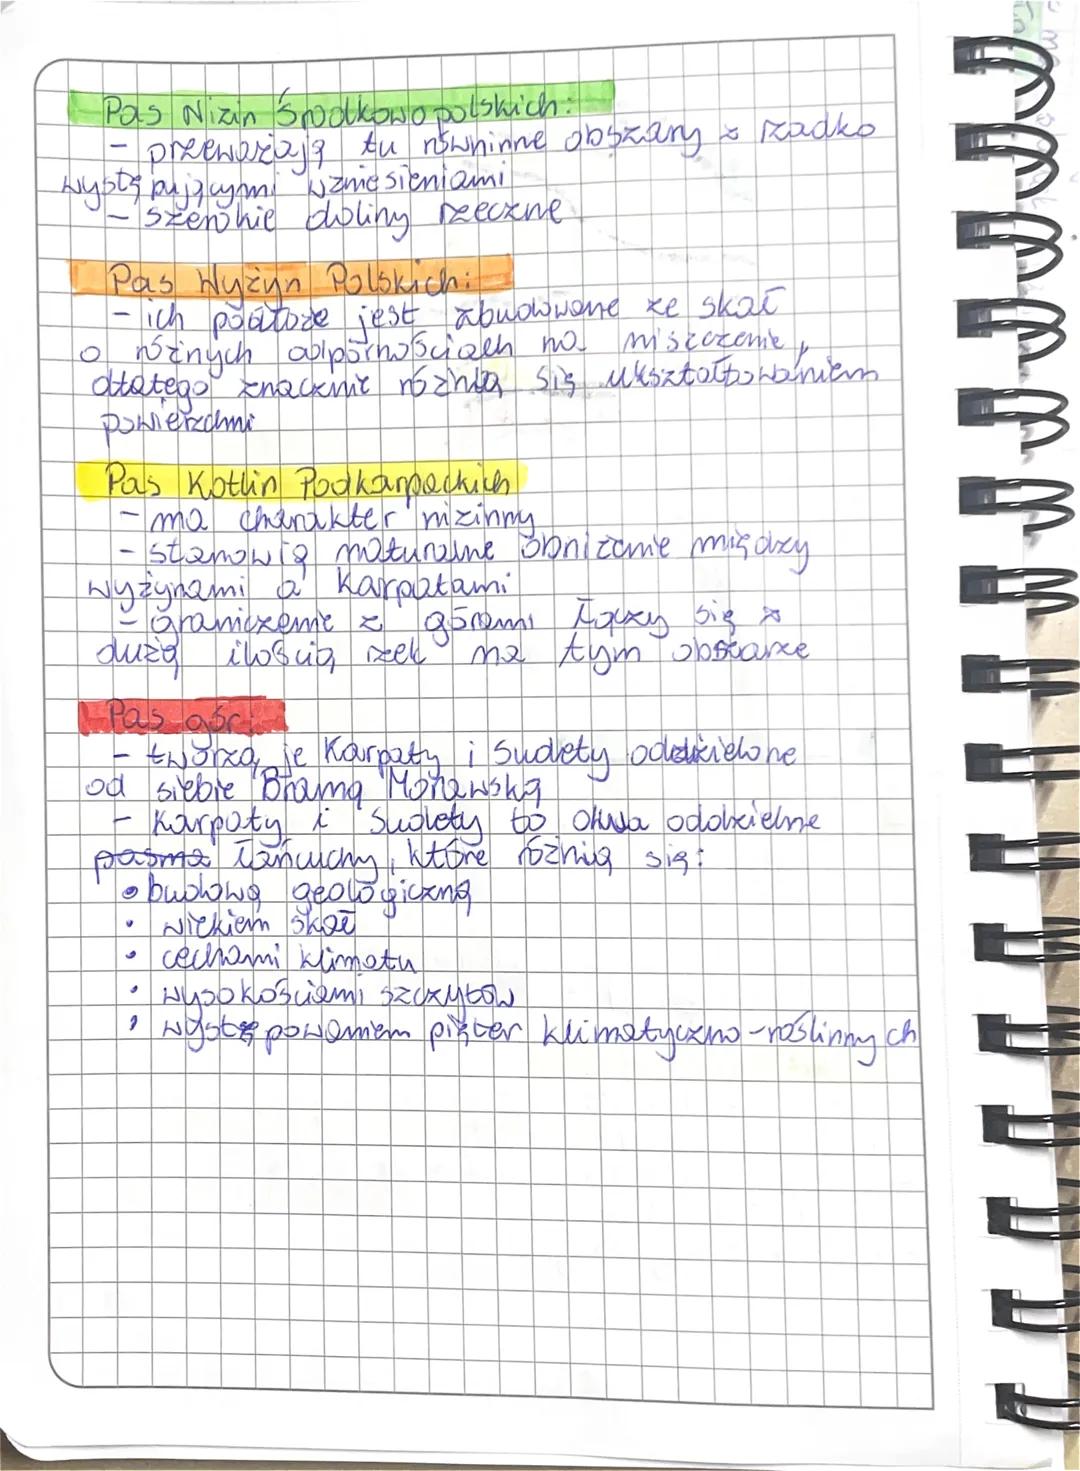 Pas Nizin Środkowopolskich:
- przeważają tu równinne obszary z rzadko
występującymi wzniesieniami
- szerokie doliny rzeczne
Pas Wyżyn Polskich:
- ich podłoże jest zbudowane ze skał
o różnych odpornościach na niszczenie,
dlatego znacznie różnią się ukształtowaniem
powierzchni
Pas Kotlin Podkarpackich
- ma charakter nizinny
- stanowią naturalne obniżenie między
wyżynami a Karpatami
- graniczenie z górami łączy się z
dużą ilością rzek na tym obszarze
Pas gór:
- tworzą je Karpaty i Sudety oddzielone
od siebie Bramą Morawską
- Karpaty i Sudety to dwa oddzielne
pasma łańcuchy, które różnią się:
• budową geologiczną
• wiekiem skał
• cechami klimatu
• wysokościami szczytów
• występowaniem pięter klimatyczno-roślinnych